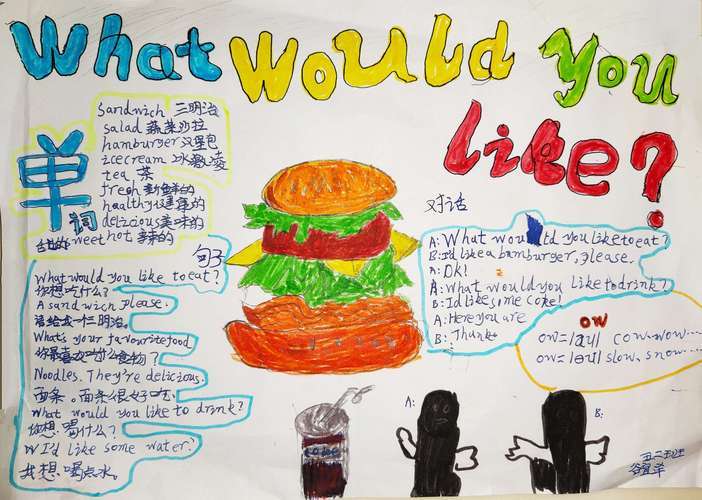 What Would You
like?
单词
sandwich 三明治
salad 蔬菜沙拉
hamburger 汉堡包
icecream 冰激凌
tea 茶
fresh 新鲜的
healthy 健康的
delicious 美味的
sweet hot 辣的
句子
What would you like to eat?
你想吃什么?
A sandwich, please.
请给我一个三明治。
What's your favourite food
你最喜欢吃什么食物?
Noodles. They're delicious.
面条。面条很好吃。
What would you like to drink?
你想喝什么?
I'd like some water?
我想喝点水。
对话
A: What would you like to eat?
B: I'd like a hamburger, please.
A: Ok!
A: What would you like to drink?
B: I'd like some coke!
A: Here you are
B: Thank
ow
ow=/au/ cow. wow....
ow=/əu/ slow. snow....
coke
A:
B: